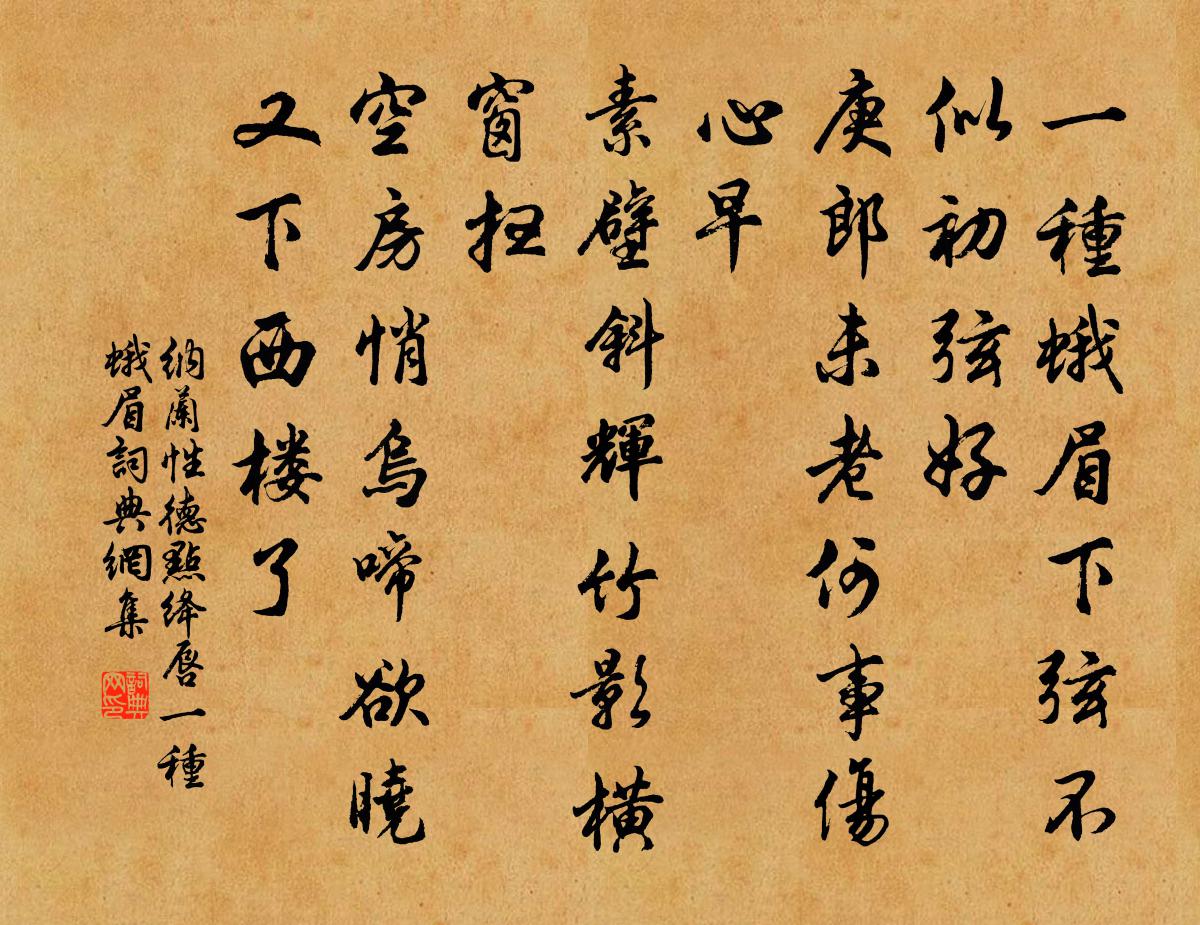 一種蛾眉下弦不
似初弦好
庾郎未老何事傷
心早
素壁斜輝竹影橫
窗掃
空房悄烏啼欲曉
又下西樓了
納蘭性德點絳唇一種
蛾眉詞典網集
詞典网印